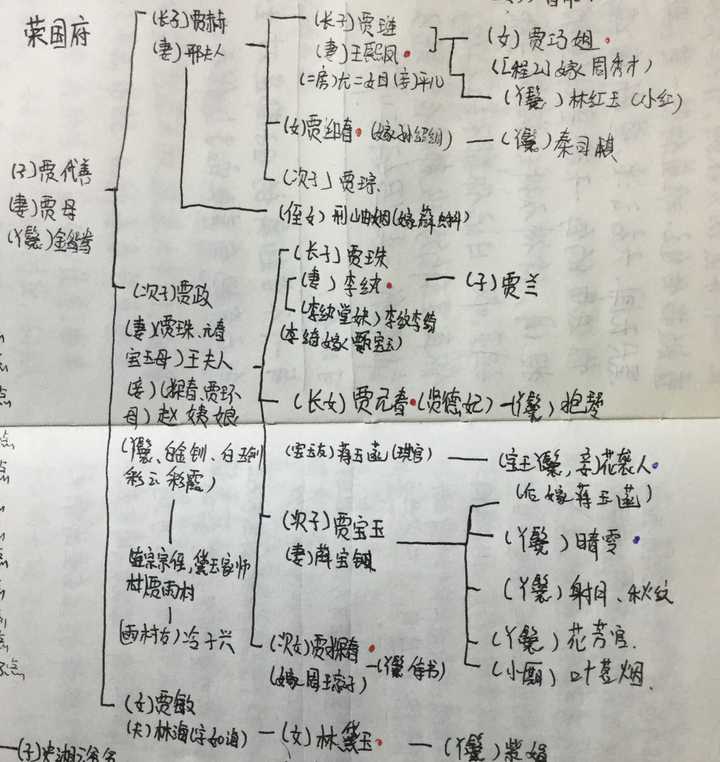 荣国府
(子)贾代善
(妻)贾母
(丫鬟)金鸳鸯
(长子)贾赦
(妻)邢夫人
(长子)贾琏
(妻)王熙凤
(二房)尤二姐(妾)平儿
(女)贾巧姐
嫁周秀才)
(丫鬟)林红玉(小红)
(女)贾迎春(嫁孙绍组)
(丫鬟)秦司棋
(次子)贾琮
(侄女)邢岫烟(嫁薛蝌)
(次子)贾政
(妻)(贾珠、元春
宝玉母)王夫人
(妾)(探春、贾环
母)赵姨娘
(丫鬟、白金钏、白玉钏
彩云 彩霞)
宗侄,黛玉家师
贾雨村
(雨村友)冷子兴
(长子)贾珠
(妻)李纨
(子)贾兰
(李纨堂妹)李纹李绮
(李绮嫁甄宝玉)
(长女)贾元春(贤德妃)
(丫鬟)抱琴
(宝玉友)蒋玉菡(琪官)
(宝玉丫鬟,妾)花袭人
(后嫁蒋玉菡)
(次子)贾宝玉
(妻)薛宝钗
(丫鬟)晴雯
(丫鬟)射月、秋纹
(丫鬟)花芳官.
(小厮)叶茗烟.
(次女)贾探春
(丫鬟侍书)
(女)贾敏
(夫)林海(字如海)
(女)林黛玉
(丫鬟)紫娟